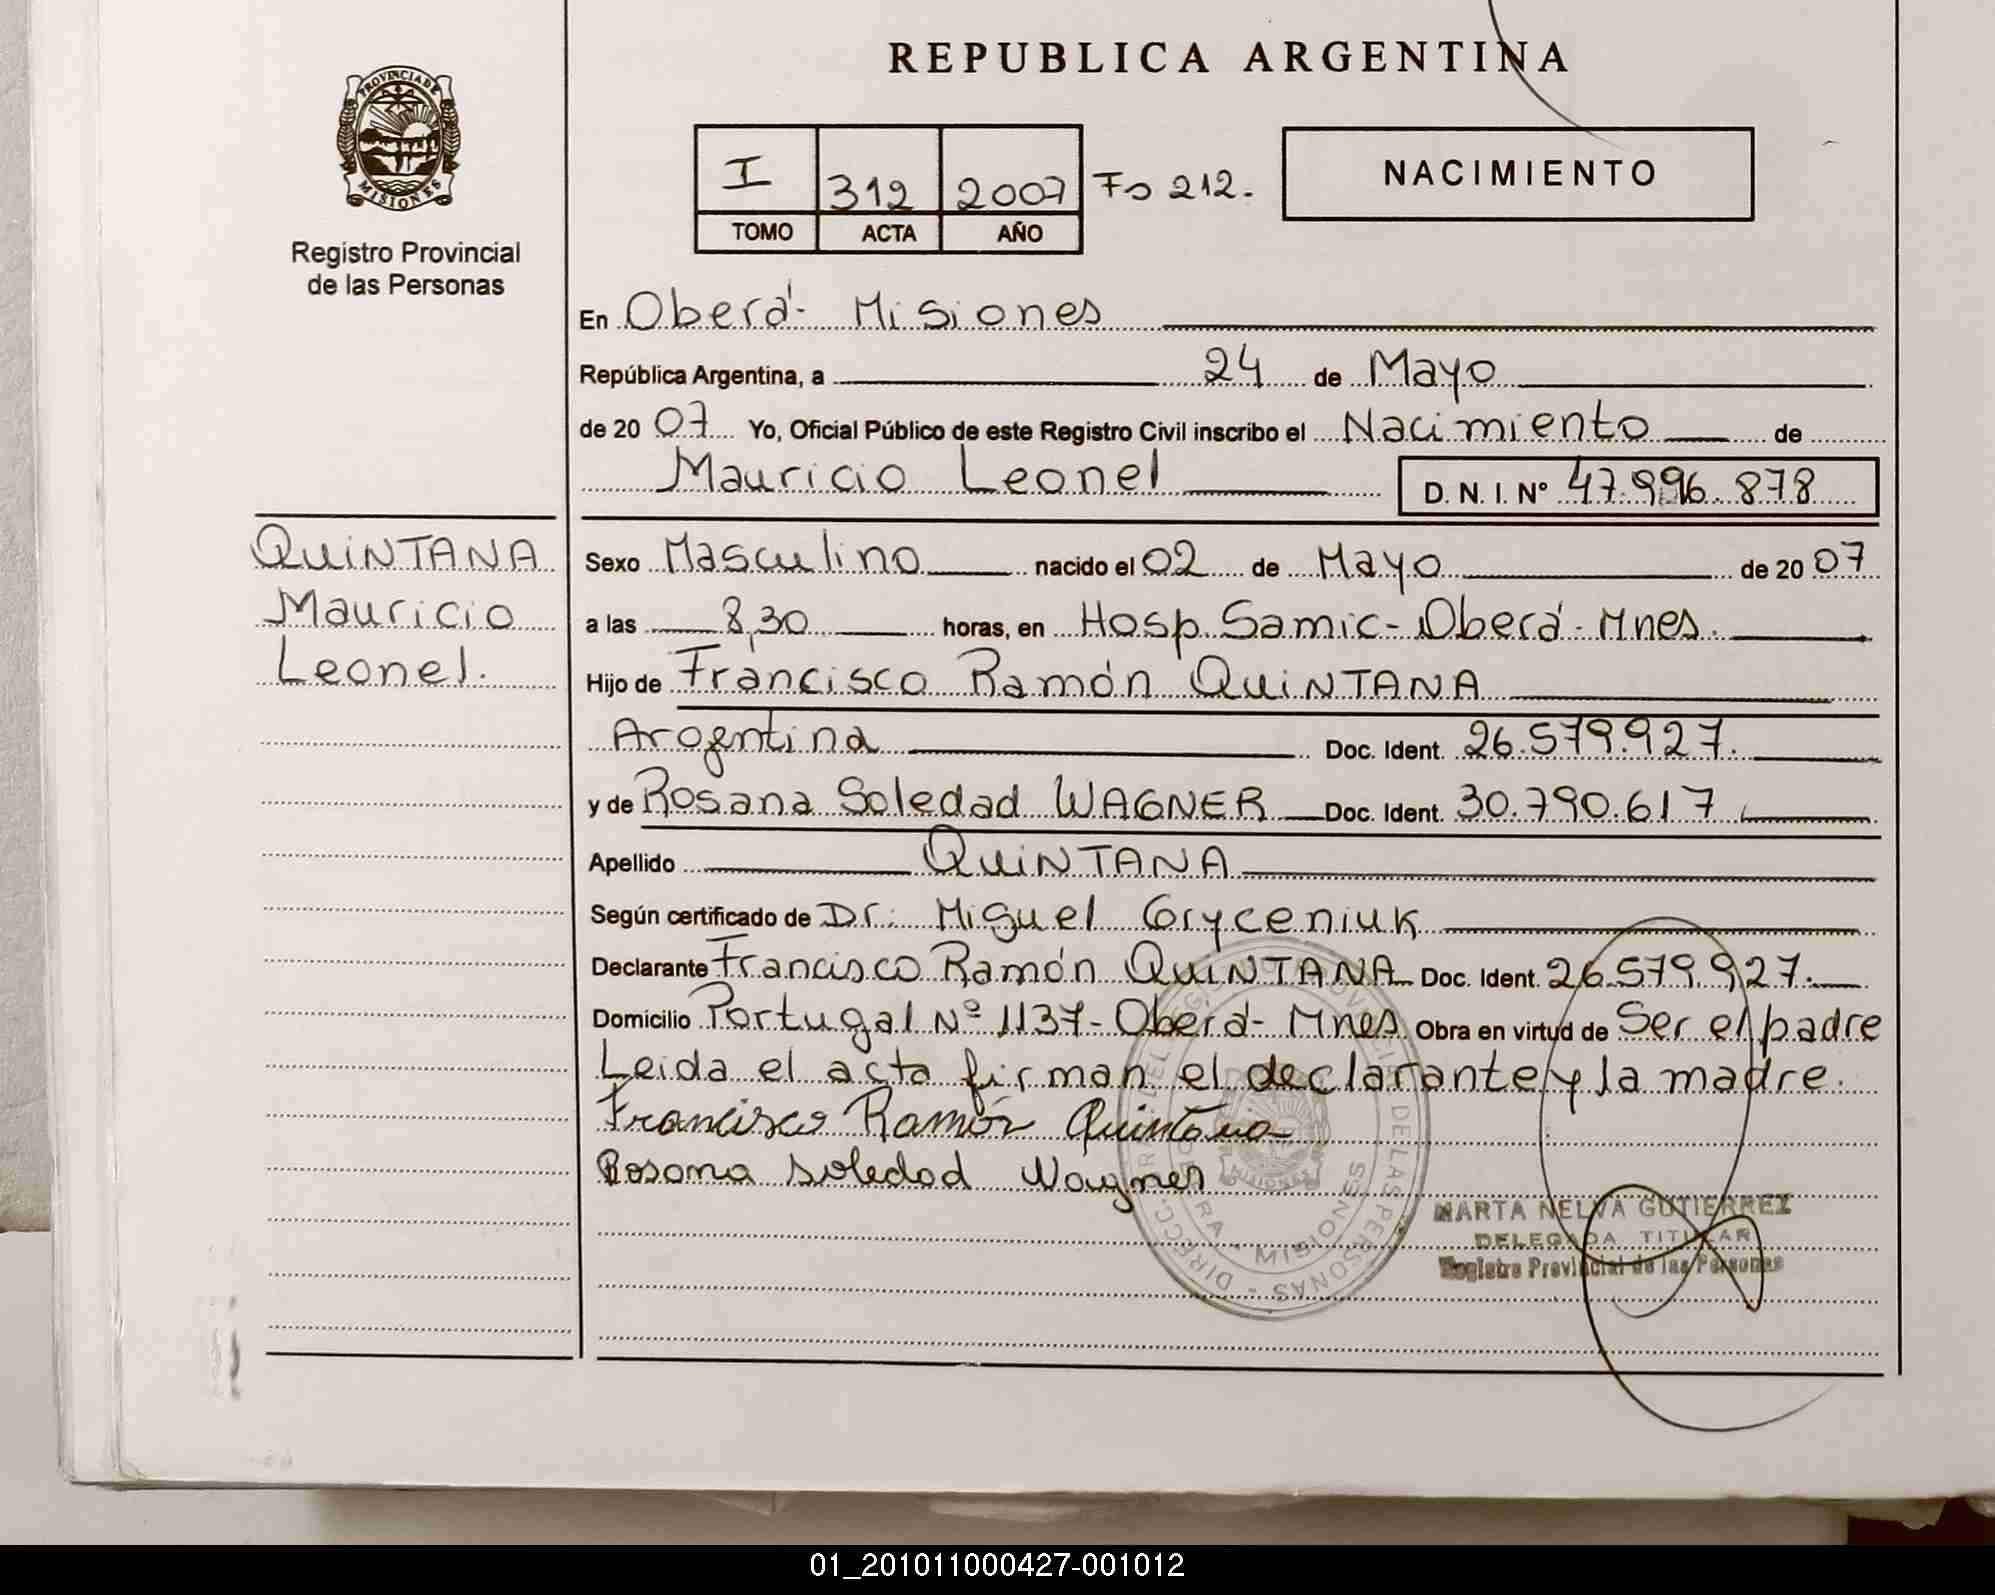 REPUBLICA ARGENTINA
PROVINCIA DE
MISIONES
Registro Provincial
de las Personas
I 312 2007 Fs 212.
TOMO ACTA AÑO
NACIMIENTO
En Oberá - Misiones
República Argentina, a 24 de Mayo
de 20 07 Yo, Oficial Público de este Registro Civil inscribo el Nacimiento de
Mauricio Leonel D. N. I. Nº 47.996.878
QUINTANA
Mauricio
Leonel.
Sexo Masculino nacido el 02 de Mayo de 20 07
a las 8,30 horas, en Hosp. Samic - Oberá - Mnes.
Hijo de Francisco Ramón QUINTANA
Argentina Doc. Ident. 26.579.927.
y de Rosana Soledad WAGNER Doc. Ident. 30.790.617
Apellido QUINTANA
Según certificado de Dr. Miguel Gryceniuk
Declarante Francisco Ramón QUINTANA Doc. Ident. 26.579.927.
Domicilio Portugal Nº 1137 - Oberá - Mnes. Obra en virtud de Ser el padre
Leida el acta firman el declarante y la madre.
Francisco Ramón Quintana
Rosana Soledad Wagner
MARTA NELVA GUTIERREZ
DELEGADA TITULAR
Registro Provincial de las Personas
MISIONES
01_201011000427-001012